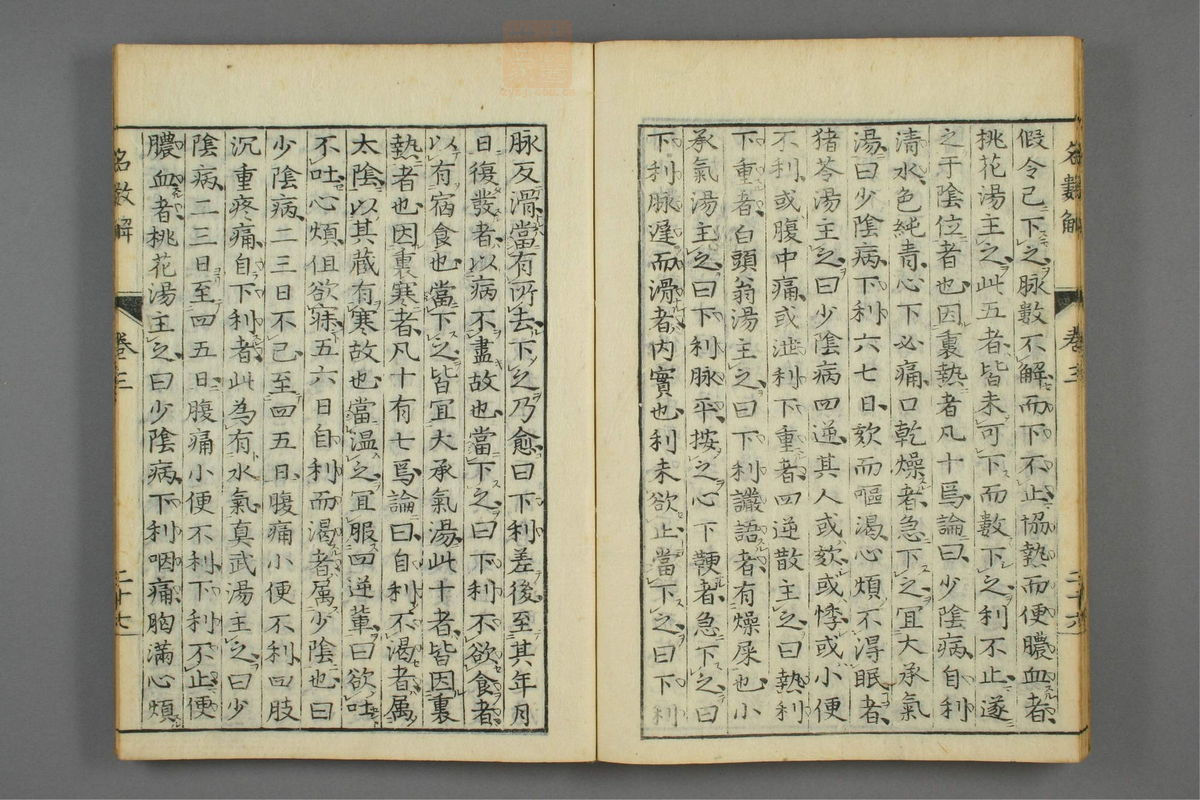 假令已下之脉數不解而下不止協熱而便膿血者
桃花湯主之此五者皆未可下而數下之利不止遂
之于陰位者也因裏熱者凡十焉論曰少陰病自利
清水色純青心下必痛口乾燥者急下之冝大承氣
湯曰少陰病下利六七日欬而嘔渴心煩不得眠者
猪苓湯主之曰少陰病四逆其人或欬或悸或小便
不利或腹中痛或泄利下重者四逆散主之曰熱利
下重者白頭翁湯主之曰下利讝語者有燥屎也小
承氣湯主之曰下利脉平按之心下鞕者急下之曰
下利脉遲而滑者内實也利未欲止當下之曰下利
名數解
卷三
二十六
脉反滑當有所去下之乃愈曰下利差後至其年月
日復發者以病不盡故也當下之曰下利不欲食者
以有宿食也當下之皆冝大承氣湯此十者皆因裏
熱者也因裏寒者凡十有七焉論曰自利不渴者属
太陰以其藏有寒故也當温之冝服四逆輩曰欲吐
不吐心煩但欲寐五六日自利而渴者属少陰也曰
少陰病二三日不已至四五日腹痛小便不利四肢
沉重疼痛自下利者此為有水氣真武湯主之曰少
陰病二三日至四五日腹痛小便不利下利不止便
膿血者桃花湯主之曰少陰病下利咽痛胸滿心煩
名數解
卷三
二十七